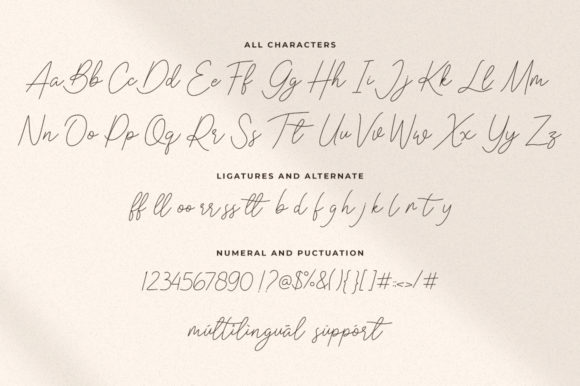 ALL CHARACTERS
Aa Bb Cc Dd Ee Ff Gg Hh Ii Jj Kk Ll Mm
Nn Oo Pp Qq Rr Ss Tt Uu Vv Ww Xx Yy Zz
LIGATURES AND ALTERNATE
ff ll oo rr ss tt b d f g h j k l n t y
NUMERAL AND PUCTUATION
1234567890 !?@$%&(){}[]#:;<>/#
mūltilìnguāl sùppórt